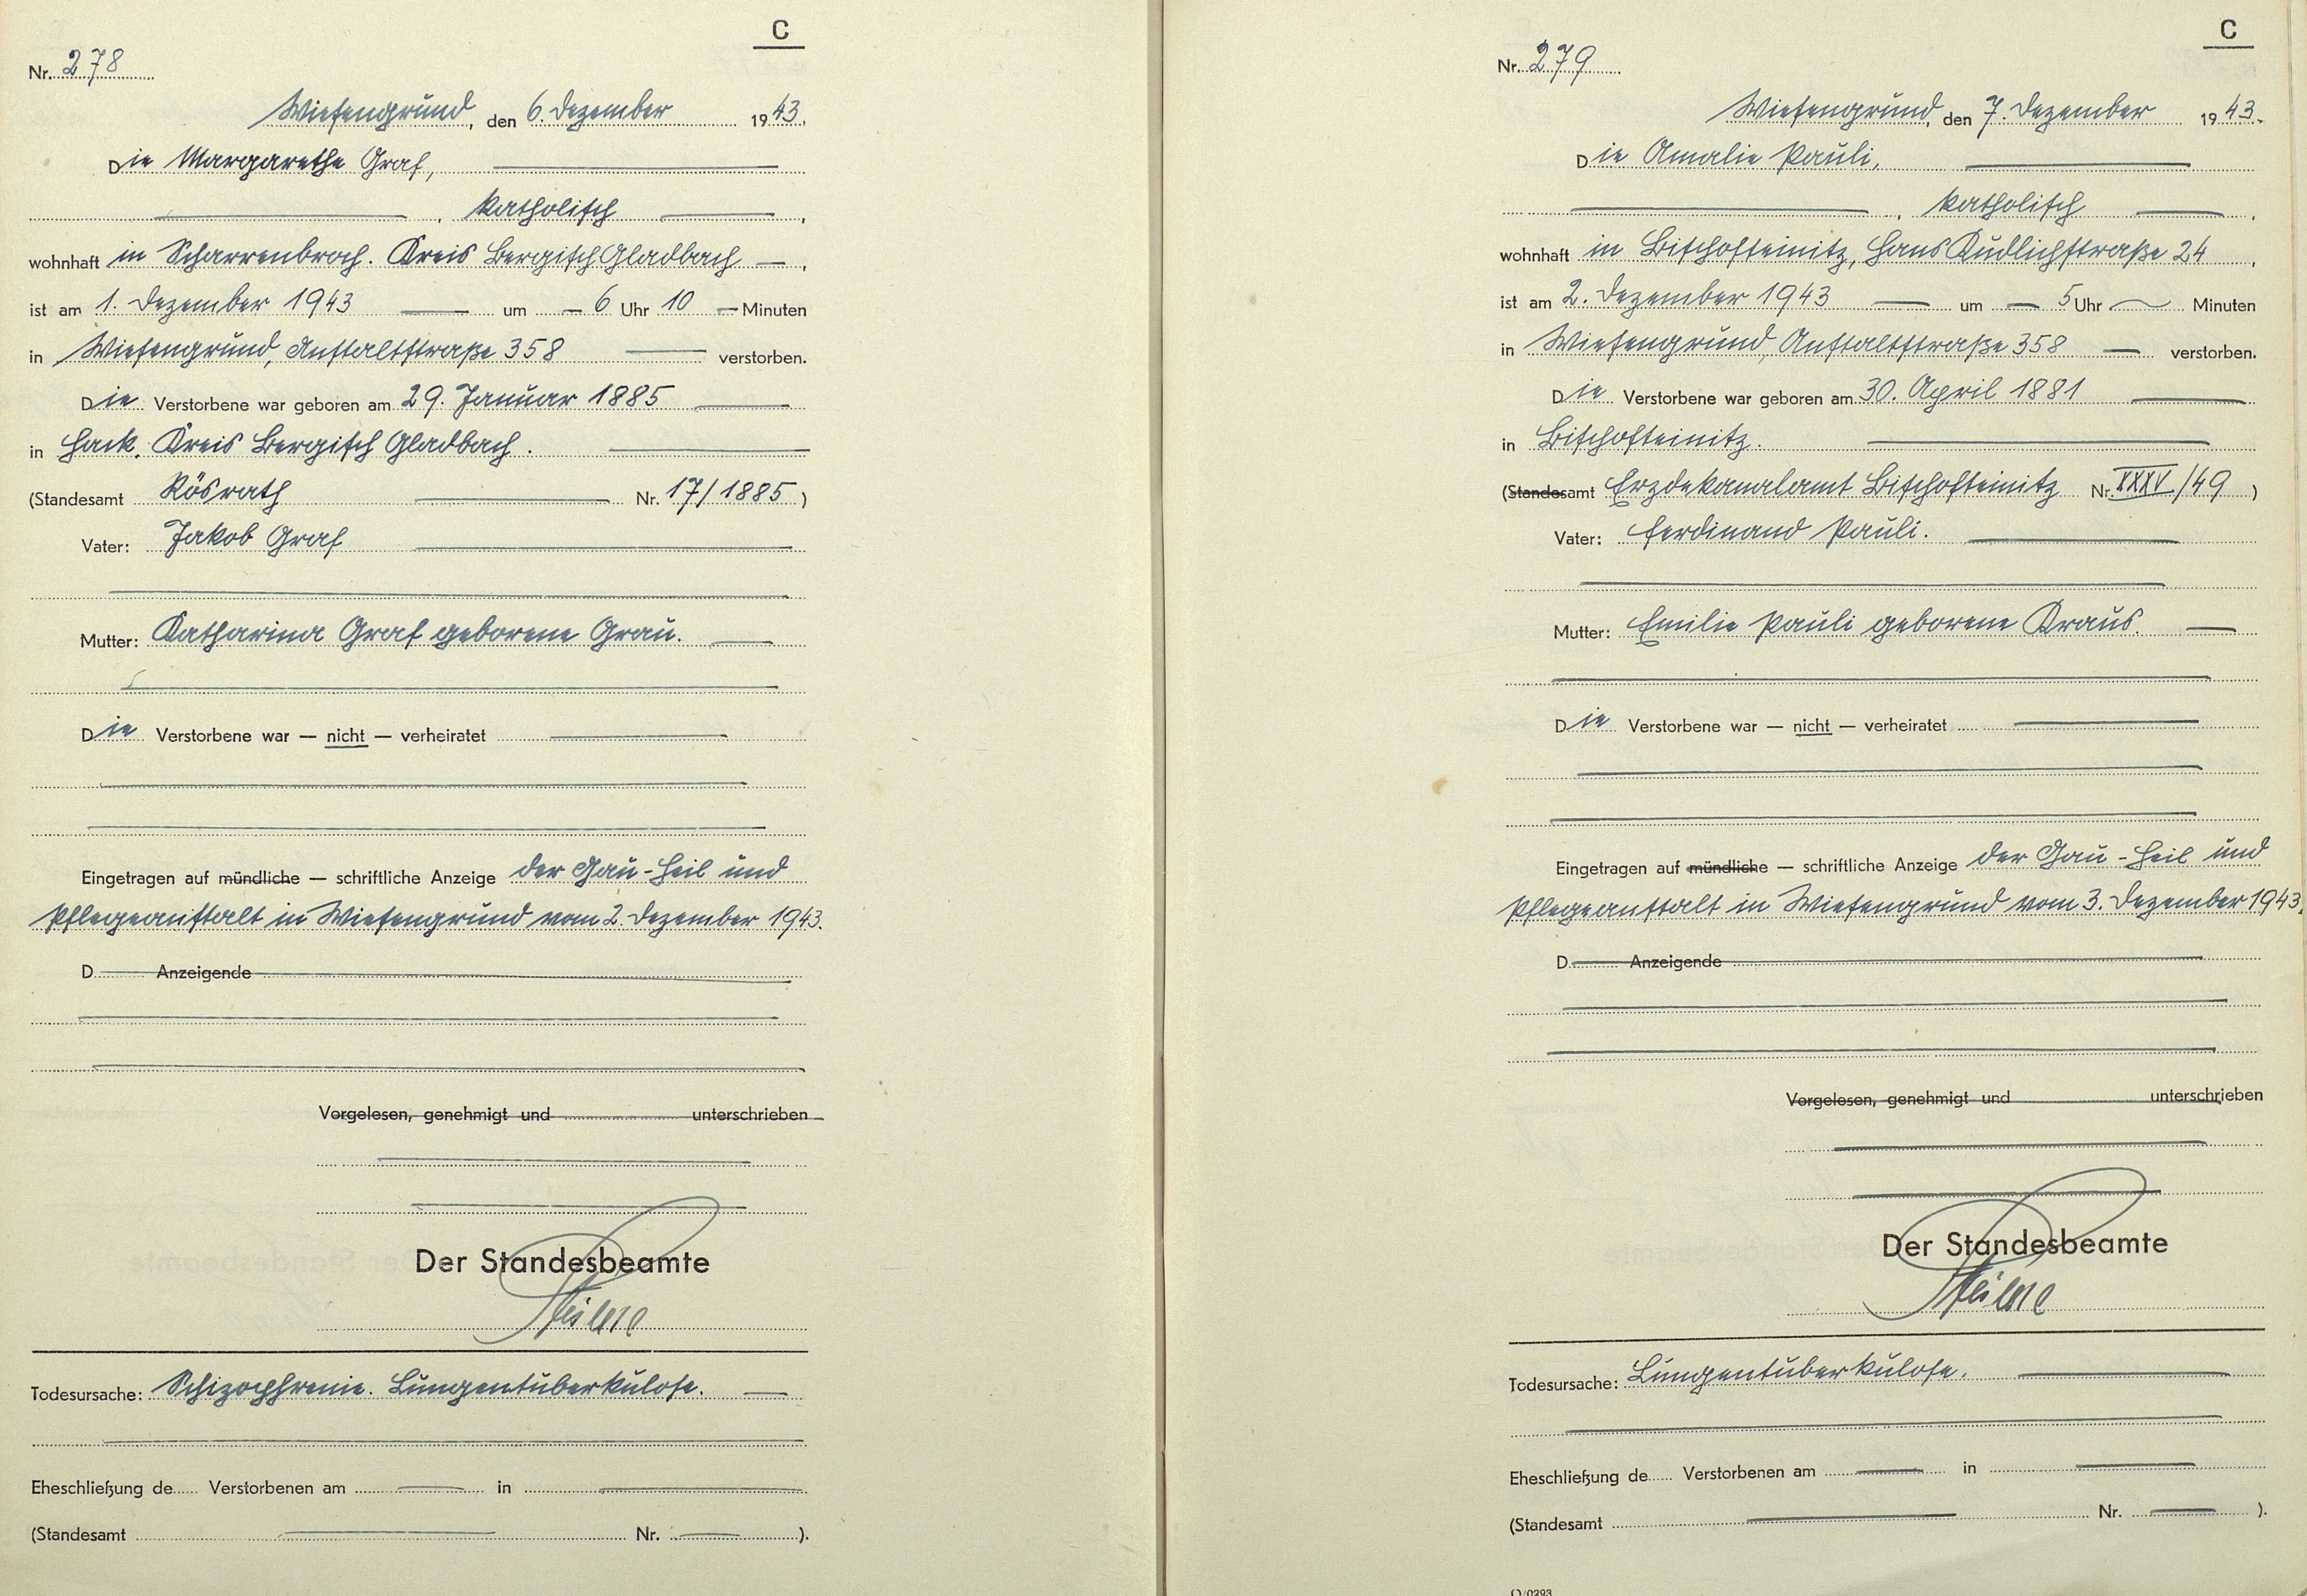 C
Nr. 278
Wiesengrund, den 6. Dezember 1943.
Die Margarethe Graf,
, katholisch ,
wohnhaft in Scharrenbroch. Kreis Bergisch Gladbach — ,
ist am 1. Dezember 1943 — um — 6 Uhr 10 — Minuten
in Wiesengrund, Anstaltsstraße 358 — verstorben.
Die Verstorbene war geboren am 29. Januar 1885 —
in Hack, Kreis Bergisch Gladbach. —
(Standesamt Rösrath — Nr. 17/1885)
Vater: Jakob Graf —
Mutter: Katharina Graf geborene Grau. —
Die Verstorbene war — nicht — verheiratet —
Eingetragen auf mündliche — schriftliche Anzeige der Gau-Heil und
Pflegeanstalt in Wiesengrund vom 2. Dezember 1943.
D Anzeigende
Vorgelesen, genehmigt und unterschrieben
Der Standesbeamte
Todesursache: Schizophrenie. Lungentuberkulose. —
Eheschließung de Verstorbenen am — in —
(Standesamt — Nr. — ).
C
Nr. 279
Wiesengrund, den 7. Dezember 1943.
Die Amalie Pauli, —
, katholisch — ,
wohnhaft in Bischofteinitz, Hans Kudlichstraße 24 ,
ist am 2. Dezember 1943 — um — 5 Uhr — Minuten
in Wiesengrund, Anstaltsstraße 358 — verstorben.
Die Verstorbene war geboren am 30. April 1881 —
in Bischofteinitz. —
(Standesamt Erzdekanalamt Bischofteinitz Nr. XXXV/49 )
Vater: Ferdinand Pauli. —
Mutter: Emilie Pauli geborene Kraus. —
Die Verstorbene war — nicht — verheiratet —
Eingetragen auf mündliche — schriftliche Anzeige der Gau-Heil und
Pflegeanstalt in Wiesengrund vom 3. Dezember 1943.
D Anzeigende
Vorgelesen, genehmigt und unterschrieben
Der Standesbeamte
Todesursache: Lungentuberkulose. —
Eheschließung de Verstorbenen am — in —
(Standesamt — Nr. — ).